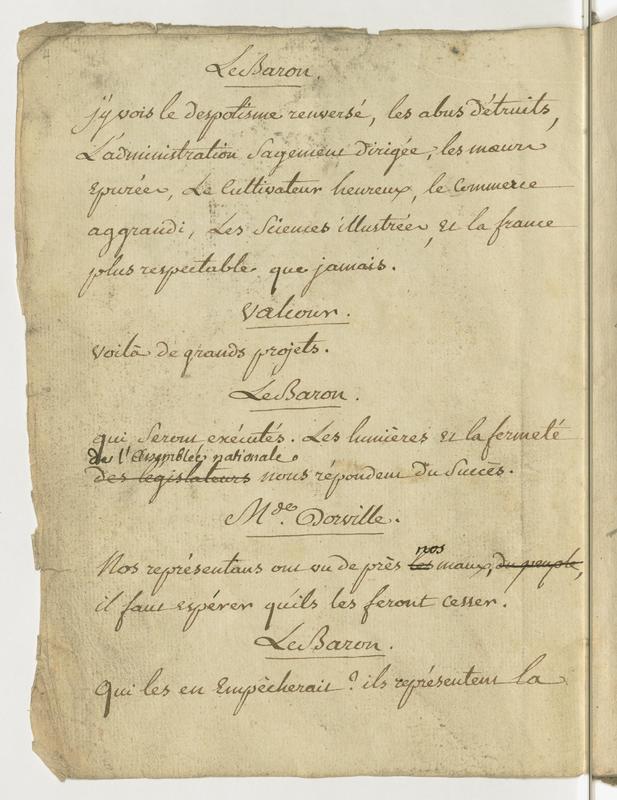 Le Baron.
j'y vois le despotisme renversé, les abus détruits,
L'administration sagement dirigée, les mœurs
épurées, Le Cultivateur heureux, le Commerce
aggrandi, Les Sciences illustrées, et la france
plus respectable que jamais.
Valcour.
Voilà de grands projets.
Le Baron.
qui seront exécutés. Les lumières et la fermeté
de l'assemblée nationale
des législateurs nous répondent du succès.
Mde. Dorville.
nos
Nos représentans ont vu de près les maux, du peuple,
il faut espérer qu'ils les feront cesser.
Le Baron.
Qui les en Empêcherait ? ils représentent la